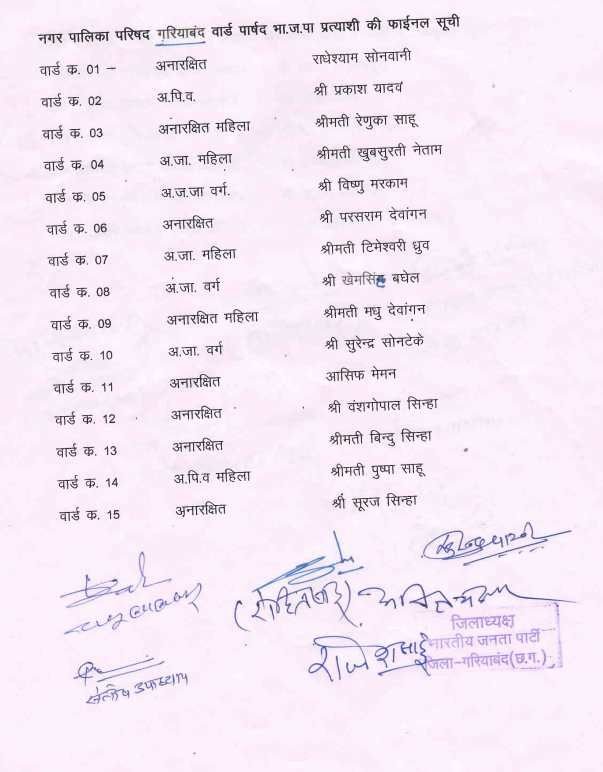 नगर पालिका परिषद गरियाबंद वार्ड पार्षद भा.ज.पा प्रत्याशी की फाईनल सूची
वार्ड क. 01 – अनारक्षित राधेश्याम सोनवानी
वार्ड क. 02 अ.पि.व. श्री प्रकाश यादव
वार्ड क. 03 अनारक्षित महिला श्रीमती रेणुका साहू
वार्ड क. 04 अ.जा. महिला श्रीमती खुबसुरती नेताम
वार्ड क. 05 अ.ज.जा वर्ग. श्री विष्णु मरकाम
वार्ड क. 06 अनारक्षित श्री परसराम देवांगन
वार्ड क. 07 अ.जा. महिला श्रीमती टिमेश्वरी ध्रुव
वार्ड क. 08 अ.जा. वर्ग श्री खेमसिंह बघेल
वार्ड क. 09 अनारक्षित महिला श्रीमती मधु देवांगन
वार्ड क. 10 अ.जा. वर्ग श्री सुरेन्द्र सोनटेके
वार्ड क. 11 अनारक्षित आसिफ मेमन
वार्ड क. 12 अनारक्षित श्री वंशगोपाल सिन्हा
वार्ड क. 13 अनारक्षित श्रीमती बिन्दु सिन्हा
वार्ड क. 14 अ.पि.व महिला श्रीमती पुष्पा साहू
वार्ड क. 15 अनारक्षित श्री सूरज सिन्हा
जिलाध्यक्ष
राजेश साहू भारतीय जनता पार्टी
जिला–गरियाबंद(छ.ग.)
संतोष उपाध्याय